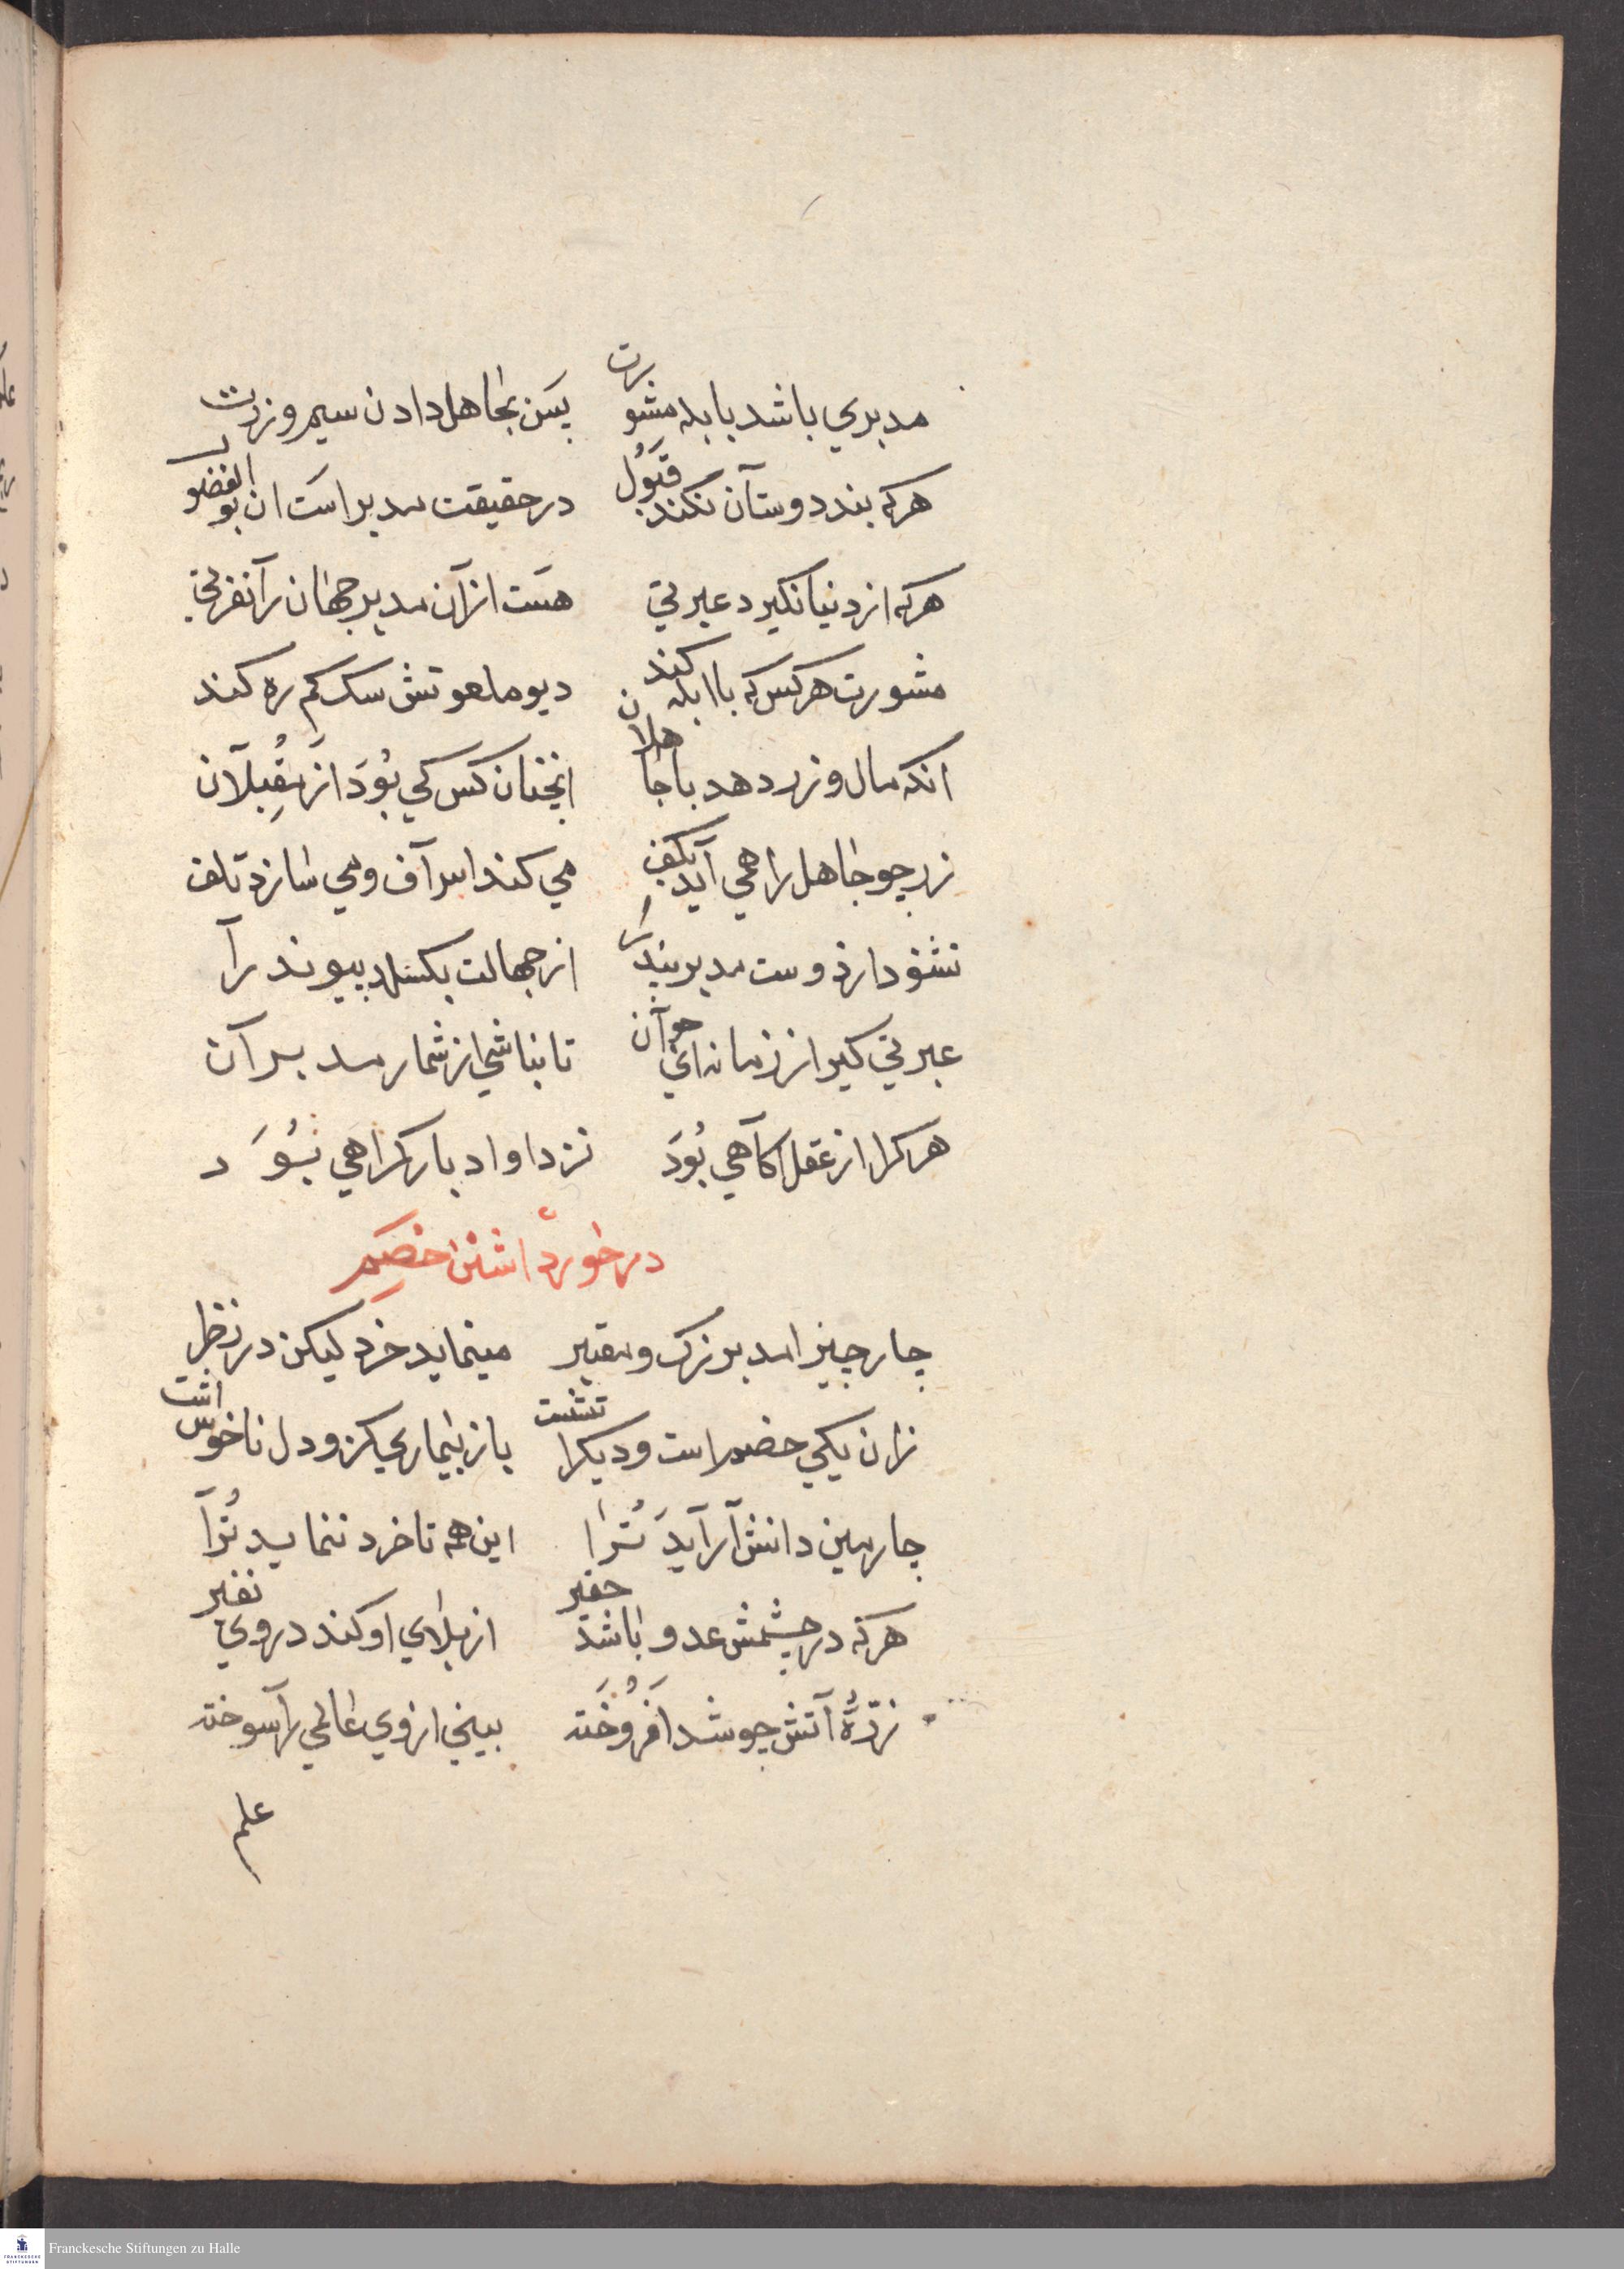 مدبري باشد بابله مشورت بس بجاهل دادن سيم وزرت
هركه پند دوستان نكند قبول در حقيقت مدبر است ان بو الفضول
هركه از دنيا نكيرد عبرتي هست از آن مدبر جهان را نفرتي
مشورت هركس كه با ابله كند ديو ملعونش سبك كم ره كند
انكه مال وزر دهد با جاهلان انچنان كس كي بود از مقبلان
زر چو جاهل را همي آيد بكف مي كند اسرآف ومي سازد تلف
نشنود از دوست مدبر پند را از جهالت بكسلد پيوند را
عبرتي كير از زمانه اي جوآن تا نباشي از شمار مدبرآن
هركرا از عقل آكاهي بود نزد او ادبار كمراهي بود
در خورد داشتن خصم
چار چيز امد بزرك ومعتبر مينمايد خرد ليكن در نظر
زان يكي خصم است وديكر اتشست باز بيماري كزو دل ناخوشست
چارمين دانش آرآيد ترا اين همه تا خرد ننمايد ترا
هركه در چشمش عدو باشد حقير از بلاي او كند روي نفير
ذرّهٔ آتش چو شد افروخته بيني از وي عالمي را سوخته
علم
Franckesche Stiftungen zu Halle